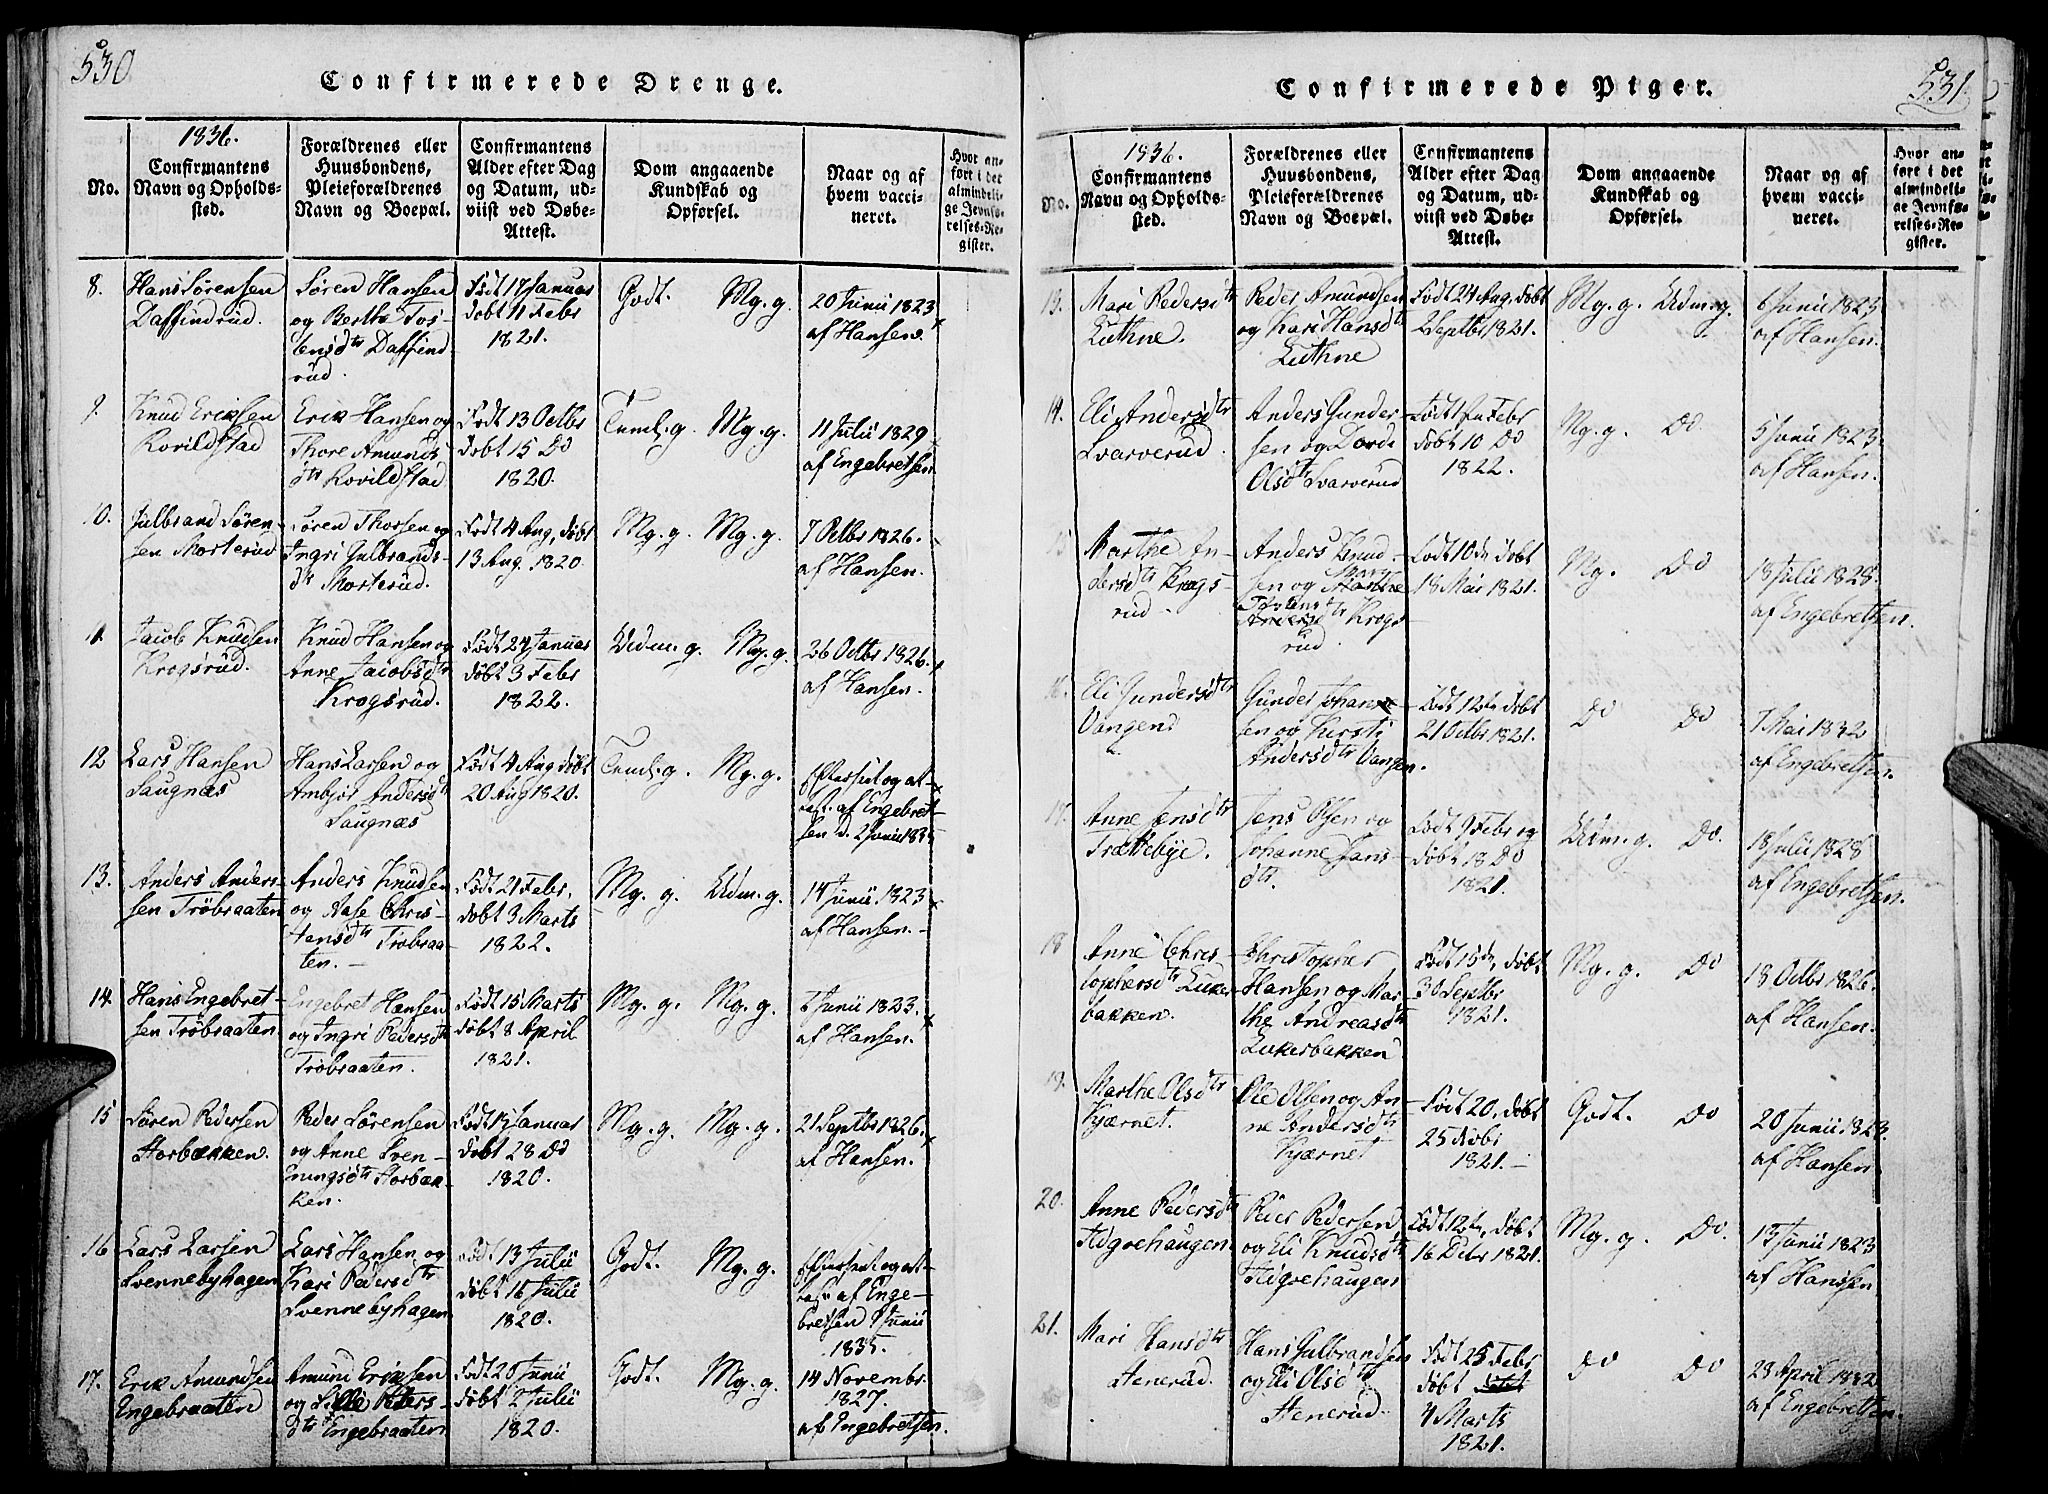 530
Confirmerede Drenge.
1836.
No.
Confirmantens
Navn og Opholds-
sted.
Forældrenes eller
Huusbondens,
Pleieforældrenes
Navn og Boepæl.
Confirmantens
Alder efter Dag
og Datum, ud-
viist ved Døbe-
Attest.
Dom angaaende
Kundskab og
Opførsel.
Naar og af
hvem vacci-
neret.
Hvor an-
ført i det
almindeli-
ge Jevnfø-
relses-Re-
gister.
8.
Hans Sørensen
Daffindrud.
Søren Hansen
og Berthe Tos-
tensdtr Daffind-
rud.
Født 17 Januar
døbt 11 Febr
1821.
Godt. Mg. g.
20 Junii 1823
af Hansen.
9.
Knud Eriksen
Rovildstad
Erik Hansen og
Thore Amunds
dtr Rovildstad
Født 13 Octbr
døbt 15 Do
1820.
Teml. g. Mg. g.
11 Julii 1829
af Engebretsen
10.
Gulbrand Søren-
sen Morterud
Søren Thorsen og
Ingri Gulbrands-
dtr Morterud.
Født 4 Aug, døbt
13 Aug. 1820.
Mg. g. Mg. g.
7 Octbr 1826.
af Hansen.
11.
Jacob Knudsen
Krogsrud.
Knud Hansen og
Anne Jacobsdtr
Krogsrud.
Født 24 Januar
døbt 3 Febr
1822.
Udm. g. Mg. g.
26 Octbr 1826.
af Hansen.
12
Lars Hansen
Saugnæs
Hans Larsen og
Ambjør Andersdtr
Saugnæs
Født 4 Aug døbt
20 Aug 1820.
Teml. g. Mg. g.
Efterseet og at-
test. af Engebret-
sen d. 2 Junii 1835
13.
Anders Anders-
sen Trøbraaten
Anders Knudsen
og Aase Chris-
tensdtr Trøbraa-
ten.
Født 21 Febr,
døbt 3 Marts
1822.
Mg. g. Udm. g.
14 Junii 1823
af Hansen.
14.
Hans Engebret-
sen Trøbraaten
Engebret Hansen
og Ingri Pedersdtr
Trøbraaten.
Født 15 Marts
døbt 8 April
1821.
Mg. g. Mg. g.
6 Junii 1823.
af Hansen.
15
Søren Pedersen
Storbakken.
Peder Sørensen
og Anne Sven-
Storbak-
ken.
Født 15 Januar
døbt 28 Do
1820.
Mg. g. Mg. g.
21 Septbr 1826.
af Hansen.
16
Lars Larsen
Svennebyhagen
Lars Hansen og
Kari Pedersdtr
Svennebyhagen
Født 13 Julii
døbt 16 Julii
1820.
Godt. Mg. g.
Efterseet og at-
af Enge-
bretsen 9 Junii
1835.
17.
Erik Amundsen
Engebraaten
Amund Eriksen
og Peders-
dtr Engebraaten
Født 20 Junii
døbt 2 Julii
1820.
Godt. Mg. g.
14 Novembr
1827.
af Engebretsen.
531
Confirmerede Piger.
1836.
No.
Confirmantens
Navn og Opholds-
sted.
Forældrenes eller
Huusbondens,
Pleieforældrenes
Navn og Boepæl.
Confirmantens
Alder efter Dag
og Datum, ud-
viist ved Døbe-
Attest.
Dom angaaende
Kundskab og
Opførsel.
Naar og af
hvem vacci-
neret.
Hvor an-
ført i det
almindeli-
ge Jevnfø-
relses-Re-
gister.
13.
Mari Pedersdtr
Luthne.
Peder Amundsen
og Kari Hansdtr
Luthne
Født 24 Aug. døbt
2 Septbr 1821.
Mg. g. Udm. g.
6 Junii 1823
af Hansen.
14.
Eli Andersdtr
Svarverud
Anders Gunder-
sen og Dordi
Olsdtr Svarverud
Født Febr
døbt 10 Do
1822.
Mg. g. Do
5 Junii 1823.
af Hansen.
15
Marthe An-
dersdtr Krogs-
rud.
Anders Knud-
sen og Marthe
Krogs
rud.
Født 10de døbt
18 Mai 1821.
Mg. Do
18 Julii 1828.
af Engebretsen.
16.
Eli Gundersdtr
Vangen
Gunder Johanne-
sen og Kirsti
Andersdtr Vangen.
Født 12te døbt
21 Octbr 1821.
Do Do
7 Mai 1832
af Engebretsen.
17.
Anne Jensdtr
Trættebye.
Jens Olsen og
Johanne Jans
dtr.
Født 9 Febr og
døbt 18 Do
1821.
Udm. g. Do.
18 Julii 1828
af Engebretsen.
18
Anne Chris-
tophersdtr Luker
bakken.
Christopher
Hansen og Mar-
the Andreasdtr
Lukerbakken
Født 15de, døbt
30 Septbr
1821.
Mg. g. Do
18 Octbr 1826.
af Hansen.
19.
Marthe Olsdtr
Kjærnet.
Ole Olsen og An-
ne Andersdtr
Kjærnet
Født 20, døbt
25
1821.
Godt. Do
20 Junii 1823.
af Hansen
20.
Anne Pedersdtr
Peder Pedersen
og Eli Knudsdtr
Født 12te, døbt
16 Debr 1821.
Mg. g. Do.
13 Junii 1823
af Hansen
21.
Mari Hansdtr
Stenerud.
Hans Gulbrandsen
og Eli Olsdtr
Stenerud.
Født 25 Febr
døbt
4 Marts
1821.
Do Do
23 April 1832
af Engebretsen.